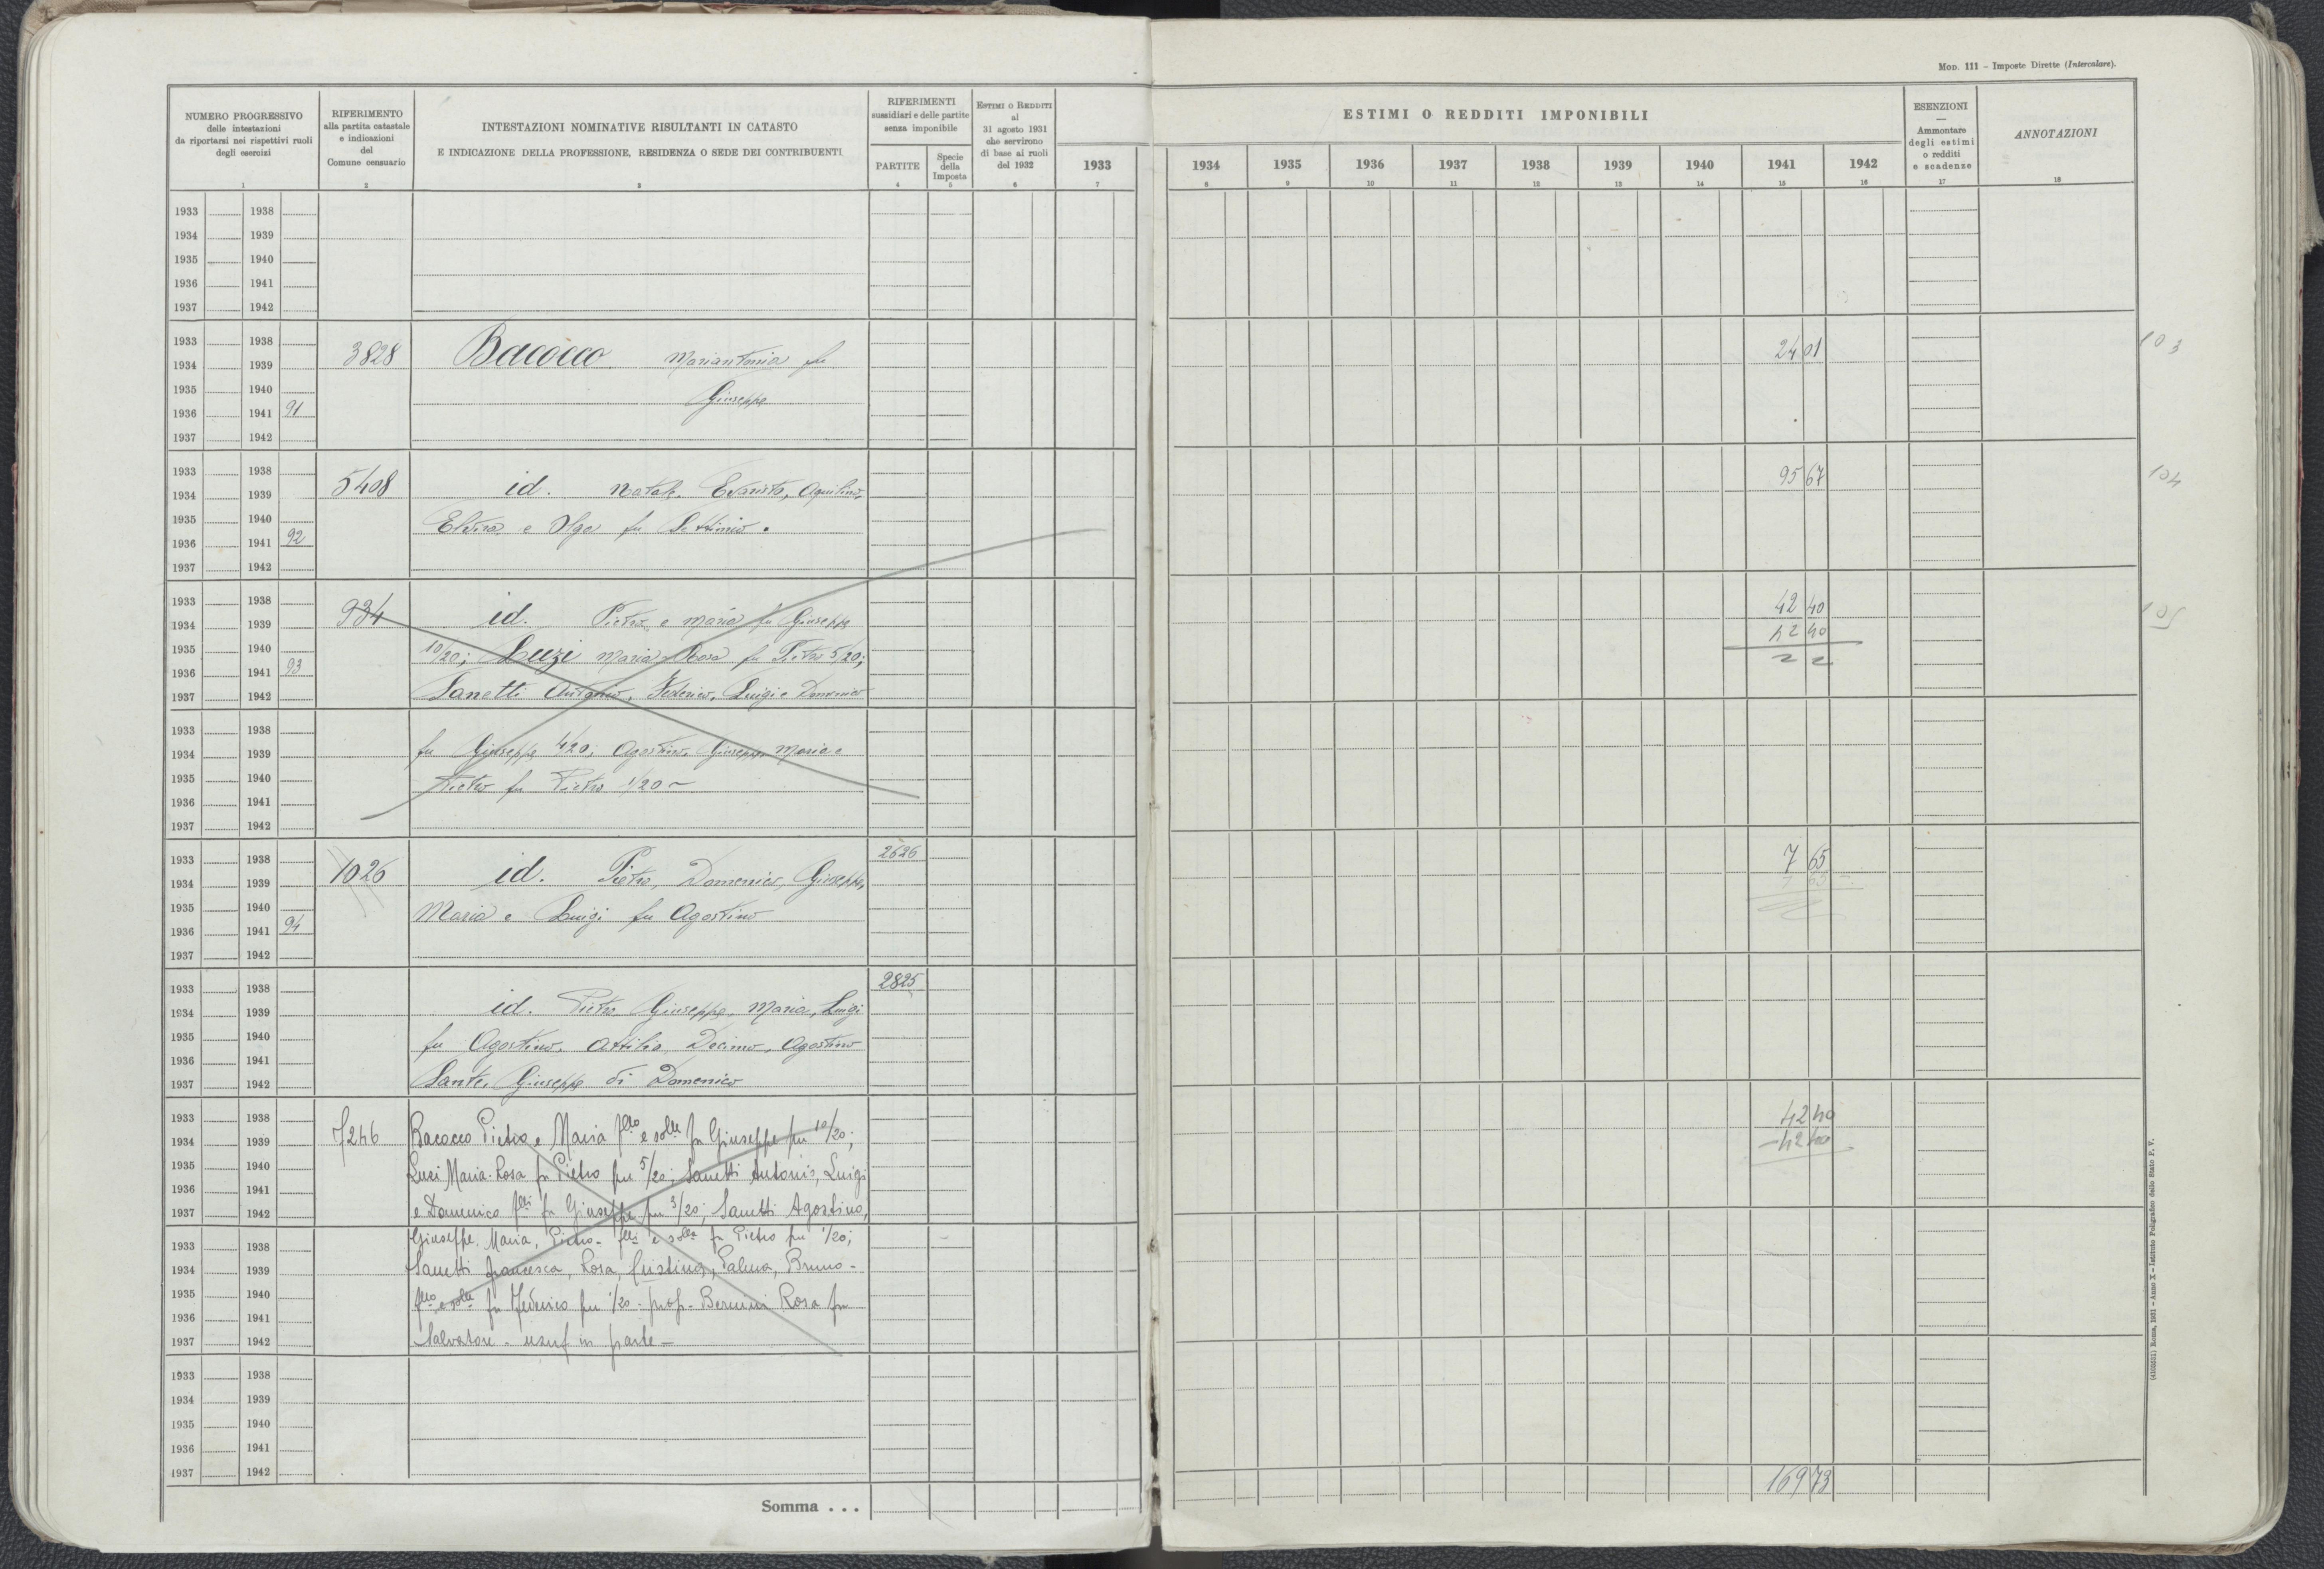 Mod. 111 – Imposte Dirette (Intercalare).
NUMERO PROGRESSIVO
delle intestazioni
da riportarsi nei rispettivi ruoli
degli esercizi
1
RIFERIMENTO
alla partita catastale
e indicazioni
del
Comune censuario
2
INTESTAZIONI NOMINATIVE RISULTANTI IN CATASTO
E INDICAZIONE DELLA PROFESSIONE, RESIDENZA O SEDE DEI CONTRIBUENTI
3
RIFERIMENTI
sussidiari e delle partite
senza imponibile
PARTITE
4
Specie
della
Imposta
5
Estimi o Redditi
al
31 agosto 1931
che servirono
di base ai ruoli
del 1932
6
ESTIMI O REDDITI IMPONIBILI
1933 1934 1935 1936 1937 1938 1939 1940 1941 1942
7 8 9 10 11 12 13 14 15 16
ESENZIONI
—
Ammontare
degli estimi
o redditi
e scadenze
17
ANNOTAZIONI
18
1933 1938
1934 1939
1935 1940
1936 1941
1937 1942
1933 1938
1934 1939 3828 Bacocco Mariantonia fu 24 01 103
1935 1940 Giuseppe
1936 1941 91
1937 1942
1933 1938
1934 1939 5408 id. Natale, Evaristo, Aquilino, 95 67 104
1935 1940 Elvira e Olga fu Settimio.
1936 1941 92
1937 1942
1933 1938 42 40
1934 1939 934 id. Pietro e Maria fu Giuseppe 42 40 105
1935 1940 10/20; Luzi Maria Rosa fu Pietro 5/20;
1936 1941 93
1937 1942 Sanetti Antonio, Federico, Luigi e Domenico
1933 1938
1934 1939 fu Giuseppe 4/20; Agostino, Giuseppe, Maria e
1935 1940 Pietro fu Pietro 1/20 ~
1936 1941
1937 1942
1933 1938 2626 7 65
1934 1939 1026 id. Pietro, Domenico, Giuseppe, 7 65
1935 1940 Maria e Luigi fu Agostino
1936 1941 94
1937 1942
1933 1938 2825
1934 1939 id. Pietro, Giuseppe, Maria, Luigi
1935 1940 fu Agostino, Attilio, Decimo, Agostino
1936 1941
1937 1942 Sante, Giuseppe di Domenico
1933 1938 42 40
1934 1939 7246 Bacocco Pietro e Maria fllo e solle fu Giuseppe per 10/20; – 42 40
1935 1940 Luzi Maria-Rosa fu Pietro per 5/20; Sanetti Antonio, Luigi
1936 1941
1937 1942 e Domenico flli fu Giuseppe per 3/20; Sanetti Agostino,
1933 1938 Giuseppe, Maria, Pietro - flli e solla fu Pietro per 1/20;
1934 1939 Sanetti Francesca, Rosa, Giustina, Palma, Bruno -
1935 1940 fllo e solle fu Federico per 1/20 - prop. - Bernini Rosa fu
1936 1941
1937 1942 Salvatore - usuf in parte -
1933 1938
1934 1939
1935 1940
1936 1941
1937 1942
Somma . . . 169 73
(4102651) Roma, 1931 – Anno X – Istituto Poligrafico dello Stato P. V.